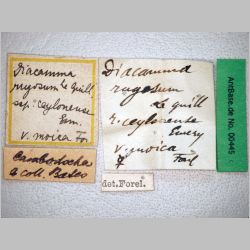 Diacamma
rugosum Le Guill
ssp. ceylonense
Em.
v. moica For
Cambodscha
coll. Bates
Diacamma
rugosum
Le Guill
r. ceylonense
Emery
v. moica
☿ Forl
det. Forel.
AntBase.de No. 00445